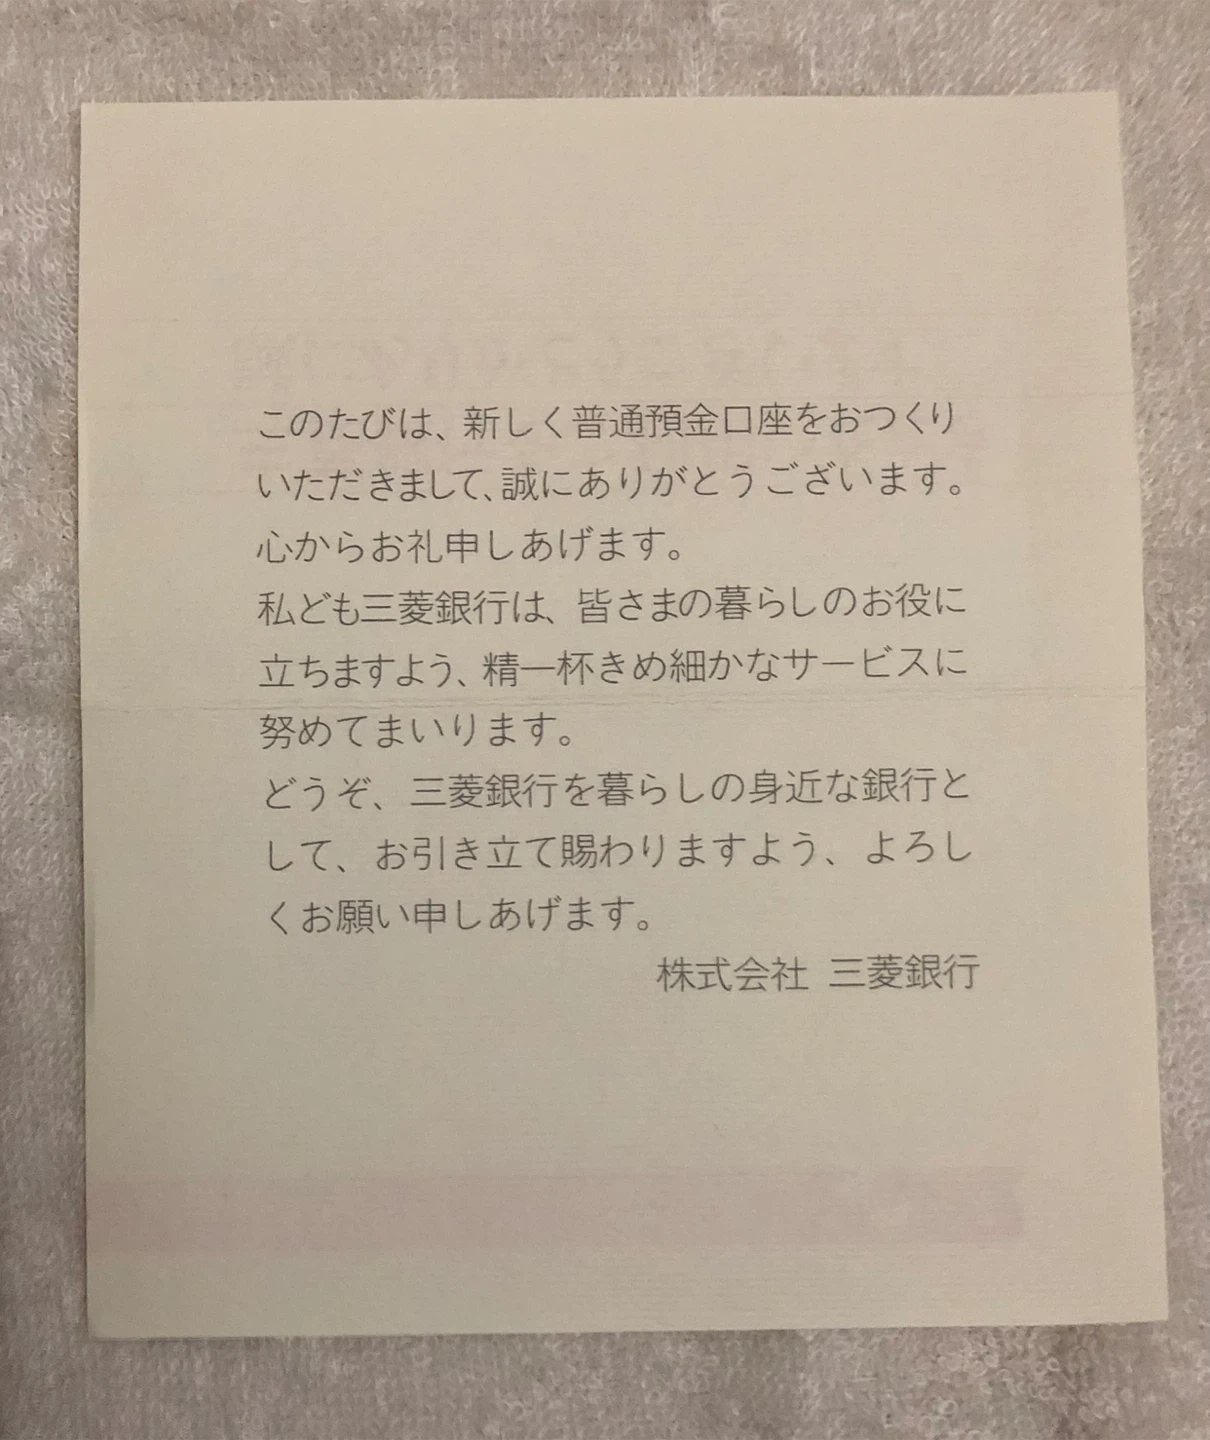 このたびは、新しく普通預金口座をおつくり
いただきまして、誠にありがとうございます。
心からお礼申しあげます。
私ども三菱銀行は、皆さまの暮らしのお役に
立ちますよう、精一杯きめ細かなサービスに
努めてまいります。
どうぞ、三菱銀行を暮らしの身近な銀行と
して、お引き立て賜わりますよう、よろし
くお願い申しあげます。
株式会社 三菱銀行